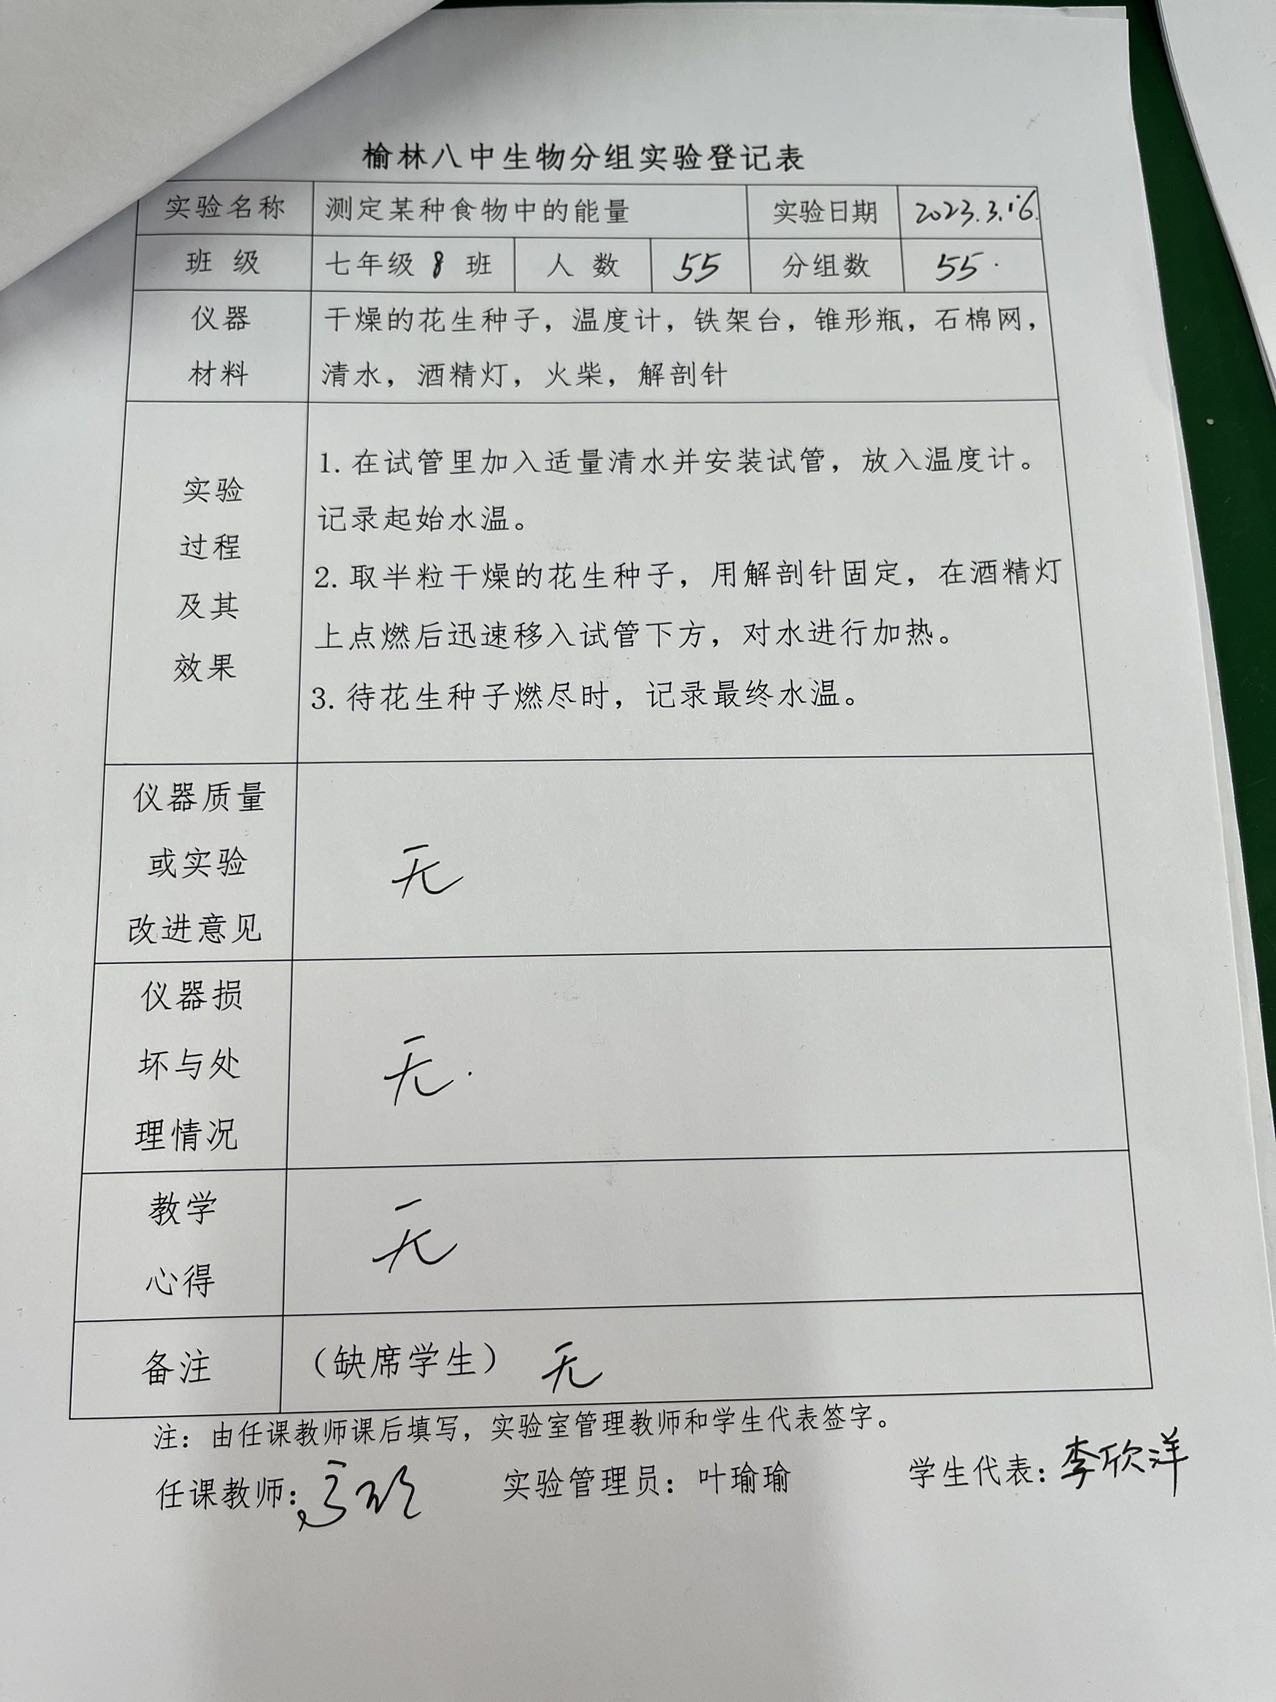 榆林八中生物分组实验登记表
实验名称 测定某种食物中的能量 实验日期 2023.3.16.
班 级 七年级 8 班 人 数 55 分组数 55.
仪器 干燥的花生种子，温度计，铁架台，锥形瓶，石棉网，
材料 清水，酒精灯，火柴，解剖针
实验
过程
及其
效果
1. 在试管里加入适量清水并安装试管，放入温度计。
记录起始水温。
2. 取半粒干燥的花生种子，用解剖针固定，在酒精灯
上点燃后迅速移入试管下方，对水进行加热。
3. 待花生种子燃尽时，记录最终水温。
仪器质量
或实验
改进意见
无
仪器损
坏与处
理情况
无.
教学
心得
无
备注 （缺席学生） 无
注：由任课教师课后填写，实验室管理教师和学生代表签字。
任课教师： 实验管理员：叶瑜瑜 学生代表：李欣洋